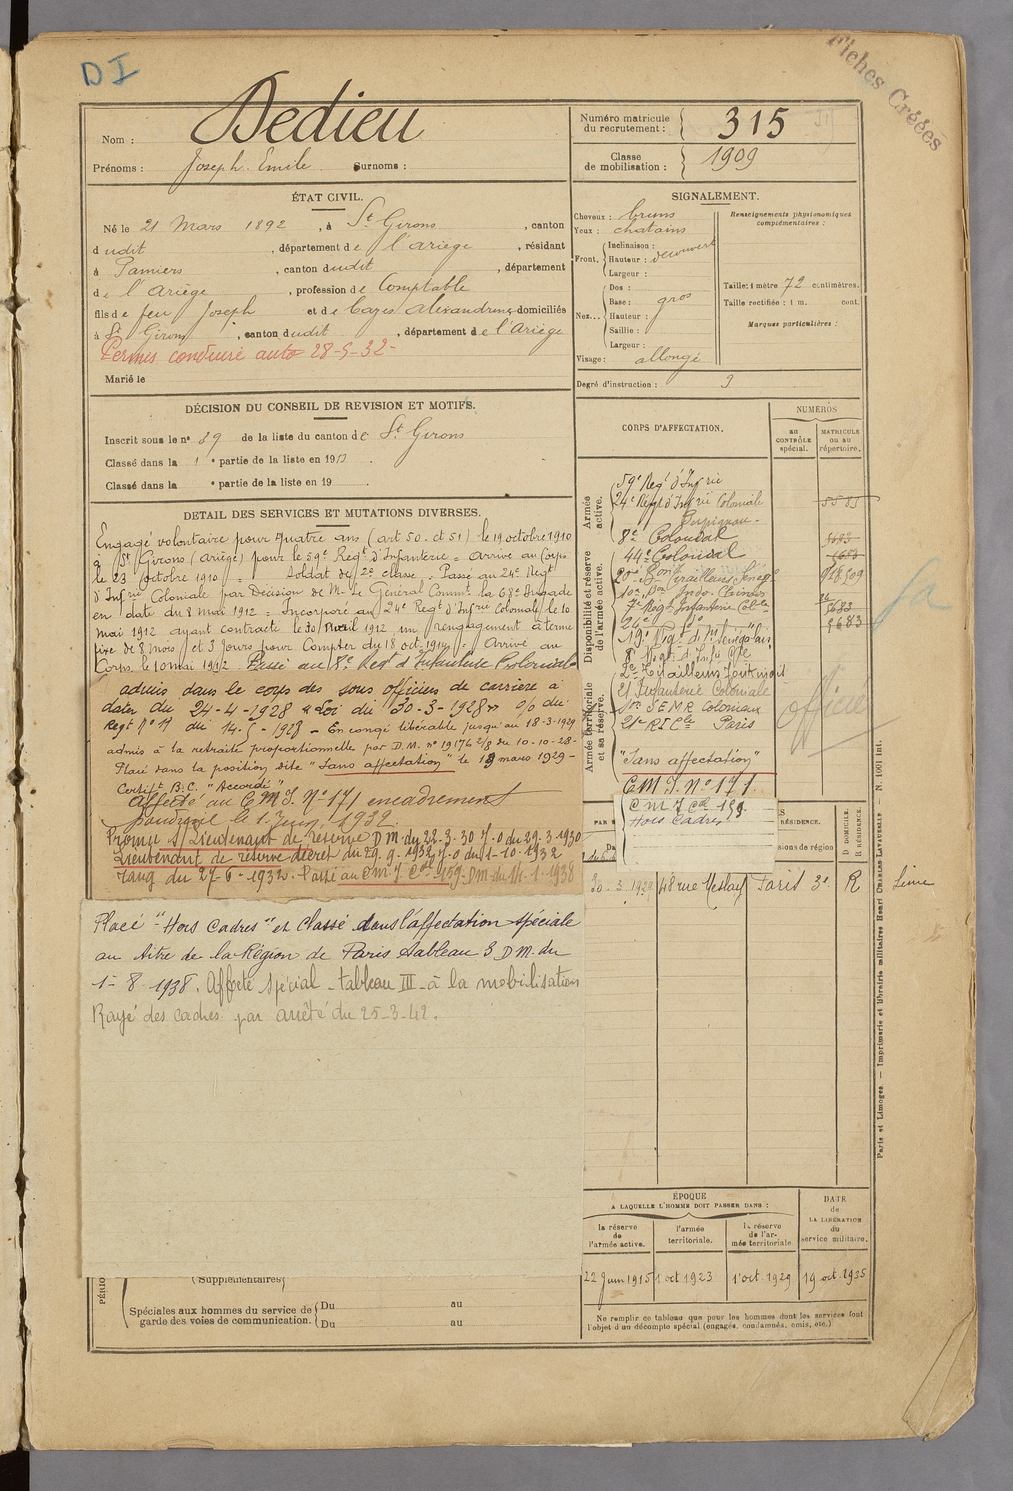 DI
Fiches Créées
Nom : Dedieu
Prénoms : Joseph Emile Surnoms :
Numéro matricule du recrutement : 315
Classe de mobilisation : 1909
ÉTAT CIVIL.
Né le 21 Mars 1892, à St Girons, canton
dudit, département de l'ariège, résidant
à Pamiers, canton dudit, département
de l'Ariège, profession de Comptable
fils de feu Joseph et de Cazes alexandrine domiciliés
à St Girons, canton dudit, département de l'Ariège
Permis conduire auto 28-5-32-
Marié le
SIGNALEMENT.
Cheveux : bruns
Yeux : chatains
Front. Inclinaison :
Hauteur : découvert
Largeur :
Nez... Dos :
Base : gros
Hauteur :
Saillie :
Largeur :
Visage : allongé
Renseignements physionomiques complémentaires :
Taille : 1 mètre 72 centimètres.
Taille rectifiée : 1 m. cent.
Marques particulières :
Degré d'instruction : 3
DÉCISION DU CONSEIL DE REVISION ET MOTIFS.
Inscrit sous le n° 89 de la liste du canton de St Girons
Classé dans la 1 e partie de la liste en 1913.
Classé dans la e partie de la liste en 19 .
DETAIL DES SERVICES ET MUTATIONS DIVERSES.
Engagé volontaire pour quatre ans (art 50 et 51) le 19 octobre 1910
à St Girons (Ariège) pour le 59e Régt d'Infanterie = Arrivé au Corps
le 23 octobre 1910 = Soldat de 2e classe. Passé au 24e Régt
d'Infrie Coloniale par Decision de Mr Le Général Commt la 68e Brigade
en date du 8 mai 1912 = Incorporé au 24e Régt d'Infrie Coloniale le 10
mai 1912 ayant contracté le 30 Avril 1912 un rengagement à terme
fixe de 8 mois et 3 Jours pour Compter du 18 oct. 1914 = Arrivé au
Corps le 10 mai 1912. Passé au 8e Régt d'Infanterie Coloniale
admis dans le corps des sous officiers de carrière à
dater du 24-4-1928 "Loi du 30-3-1928" o/o du
Régt n° 11 du 14-5-1928 - En congé libérable jusqu'au 18-3-1929
admis à la retraite proportionnelle par D.M. n° 19176 2/8 du 10-10-28-
Placé dans la position dite "Sans affectation" le 19 mars 1929-
Certift B.C. "Accordé"
affecté au C M I. N° 171 encadrement
le 1. Juin 1932.
Promu s/Lieutenant de réserve D M. du 22-3-30 J-O du 29-3-1930
Lieutenant de réserve décret du 29-9-1932, J-O du 1-10-1932
rang du 27-6-1932. Passé au C M I Cal 159- DM. du 14-1-1938
Placé "Hors Cadres" et classé dans l'affectation spéciale
au titre de la Région de Paris tableau 3 D M. du
1-8-1938. Affecté spécial - tableau III - à la mobilisation
Rayé des cadres par arrêté du 25-3-42.
PÉRIO
Supplémentaires
Spéciales aux hommes du service de garde des voies de communication. Du au
Du au
CORPS D'AFFECTATION.
NUMÉROS
au CONTRÔLE spécial.
MATRICULE ou au répertoire.
Armée active.
59e Regt d'Infrie
24e Régt d'Infrie Coloniale 5583
Perpignan-
8e Colonial
Disponibilité et réserve de l'armée active.
44e Colonial
7e Régt Infanterie Colle
24e do 5683
Armée territoriale et sa réserve.
21 Infanterie Coloniale
S E M R Coloniaux
21e R I Cle Paris
"Sans affectation"
C M I. N° 171.
C M I Cal 159.
Hors Cadres
officier
30-3-1929 48 rue Meslay Paris 3e R Seine
RÉSIDENCE.
D DOMICILE.
R RÉSIDENCE.
ÉPOQUE
A LAQUELLE L'HOMME DOIT PASSER DANS :
la réserve de l'armée active.
l'armée territoriale.
la réserve de l'armée territoriale.
DATE de LA LIBÉRATION du service militaire.
22 Juin 1915 1 oct 1923 1' oct. 1929 19 oct. 1935
Ne remplir ce tableau que pour les hommes dont les services font
l'objet d'un décompte spécial (engagés, condamnés, omis, etc.)
Paris et Limoges. — Imprimerie et librairie militaires Henri Charles Lavauzelle — N. 1001 Int.